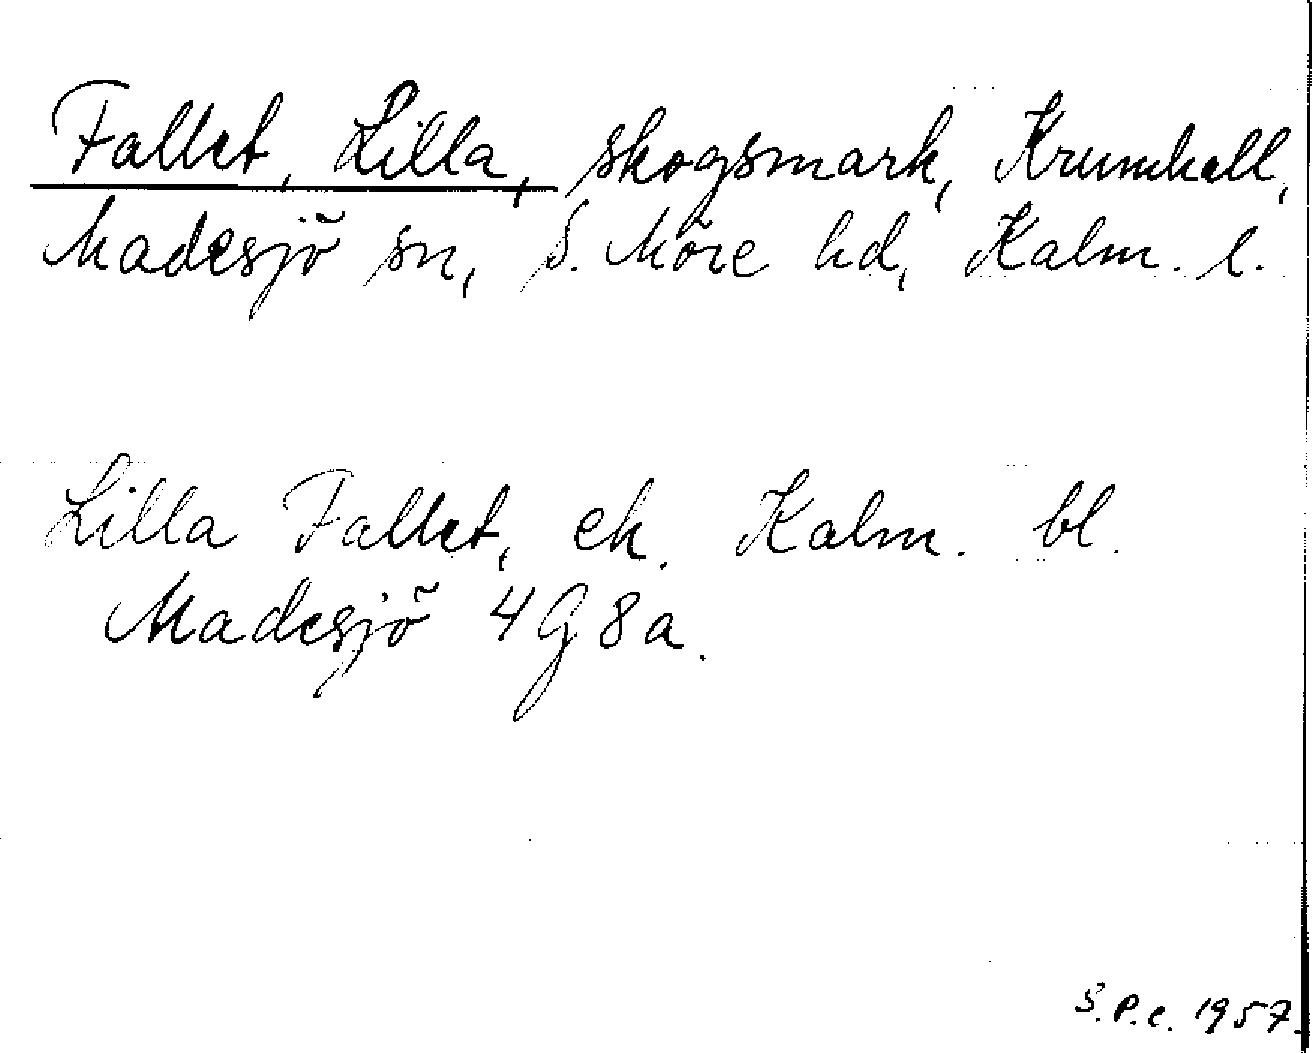 Fallet, Lilla, skogsmark, Krumhall,
Madesjö sn, S. Möre hd, Kalm. l.
Lilla Fallet, ek. Kalm. bl.
Madesjö 4G8a.
S.P.c. 1957.